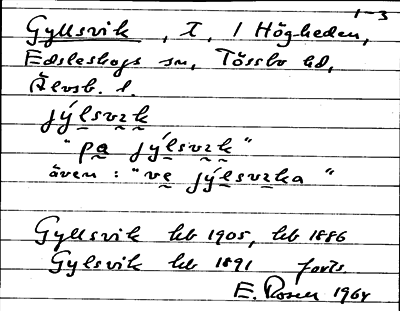 1-3
Gyllsvik, T, / Högheden,
Edsleskogs sn, Tössbo hd,
Älvsb. l.
jýlsvɪk
"pa jýlsvɪk"
även: "ve jýlsvɪka"
Gyllsvik kb 1905, kb 1886
Gylsvik kb 1891 forts.
E. Rosén 1964